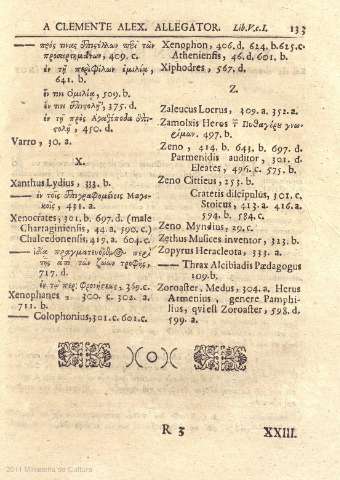 A CLEMENTE ALEX. ALLEGATOR. Lib. V. c. I. 133
—— πρός τινας ἐπιστέλλων περὶ τῶν
προσηρτημένων, 409. c.
ἐν τῇ
ὁμιλίᾳ,
641. b.
ἔν τινι Ὁμιλίᾳ, 509. b.
ἔν τινι ἐπιστολῇ, 375. d.
ἐν τῇ πρὸς
450. d.
Varro, 30. a.
X.
Xanthus Lydius, 333. b.
—— ἐν τοῖς ἐπιγραφομένοις Μαγι-
κοῖς, 431. a.
Xenocrates, 301. b. 697. d. (male
Chartaginiensis, 44. a. 390. c.)
Chalcedonensis, 419. a. 604. c.
—— ἰδίᾳ πραγματευόμενος περὶ
τῆς ἀπὸ τῶν ζώων τροφῆς,
717. d.
ἐν τῷ περὶ Φρονήσεως, 369. c.
Xenophanes, 300. c. 302. a.
711. b.
—— Colophonius, 301. c. 601. c.
Xenophon, 406. d. 624. b. 625. c.
Atheniensis, 46. d. 601. b.
Xiphodres, 567. d.
Z.
Zaleucus Locrus, 309. a. 352. a.
Zamolxis Heros τῶν Πυθαγόρᾳ γνω-
ρίμων. 497. b.
Zeno, 414. b. 643. b. 697. d.
Parmenidis auditor, 301. d.
Eleates, 496. c. 575. b.
Zeno Cittieus, 253. b.
Cratetis discipulus, 301. c.
Stoicus, 413. a. 416. a.
594. b. 584. c.
Zeno Myndius, 29. c.
Zethus Musices inventor, 323. b.
Zopyrus Heracleota, 333. a.
—— Thrax Alcibiadis Pædagogus
109. b.
Zoroaster, Medus, 304. a. Herus
Armenius, genere Pamphi-
lius, qui est Zoroaster, 598. d.
599. a.
R 3
XXIII.
2011 Ministerio de Cultura